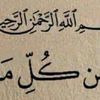 بِسْمِ اللَّهِ الرَّحْمَٰنِ الرَّحِيمِ
مِن كُلِّ